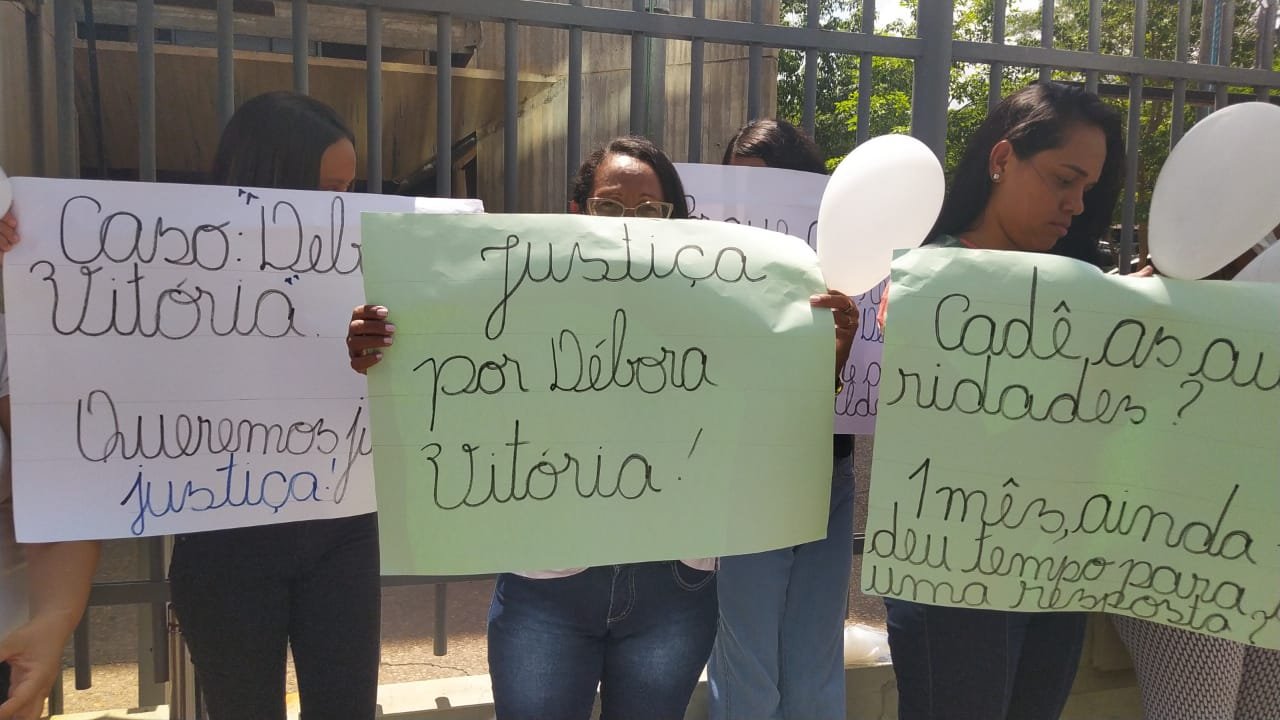 Caso: "Déb
Vitória".
Queremos
justiça!
justiça
por Débora
Vitória!
que
Cadê, as au
ridades?
1 mês, ainda
deu tempo para
uma resposta?